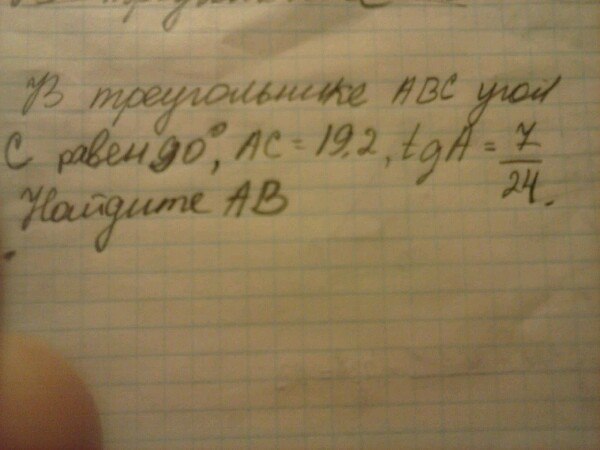 В треугольнике ABC угол
С равен 90°, AC = 19,2, tgA = 7/24.
Найдите AB